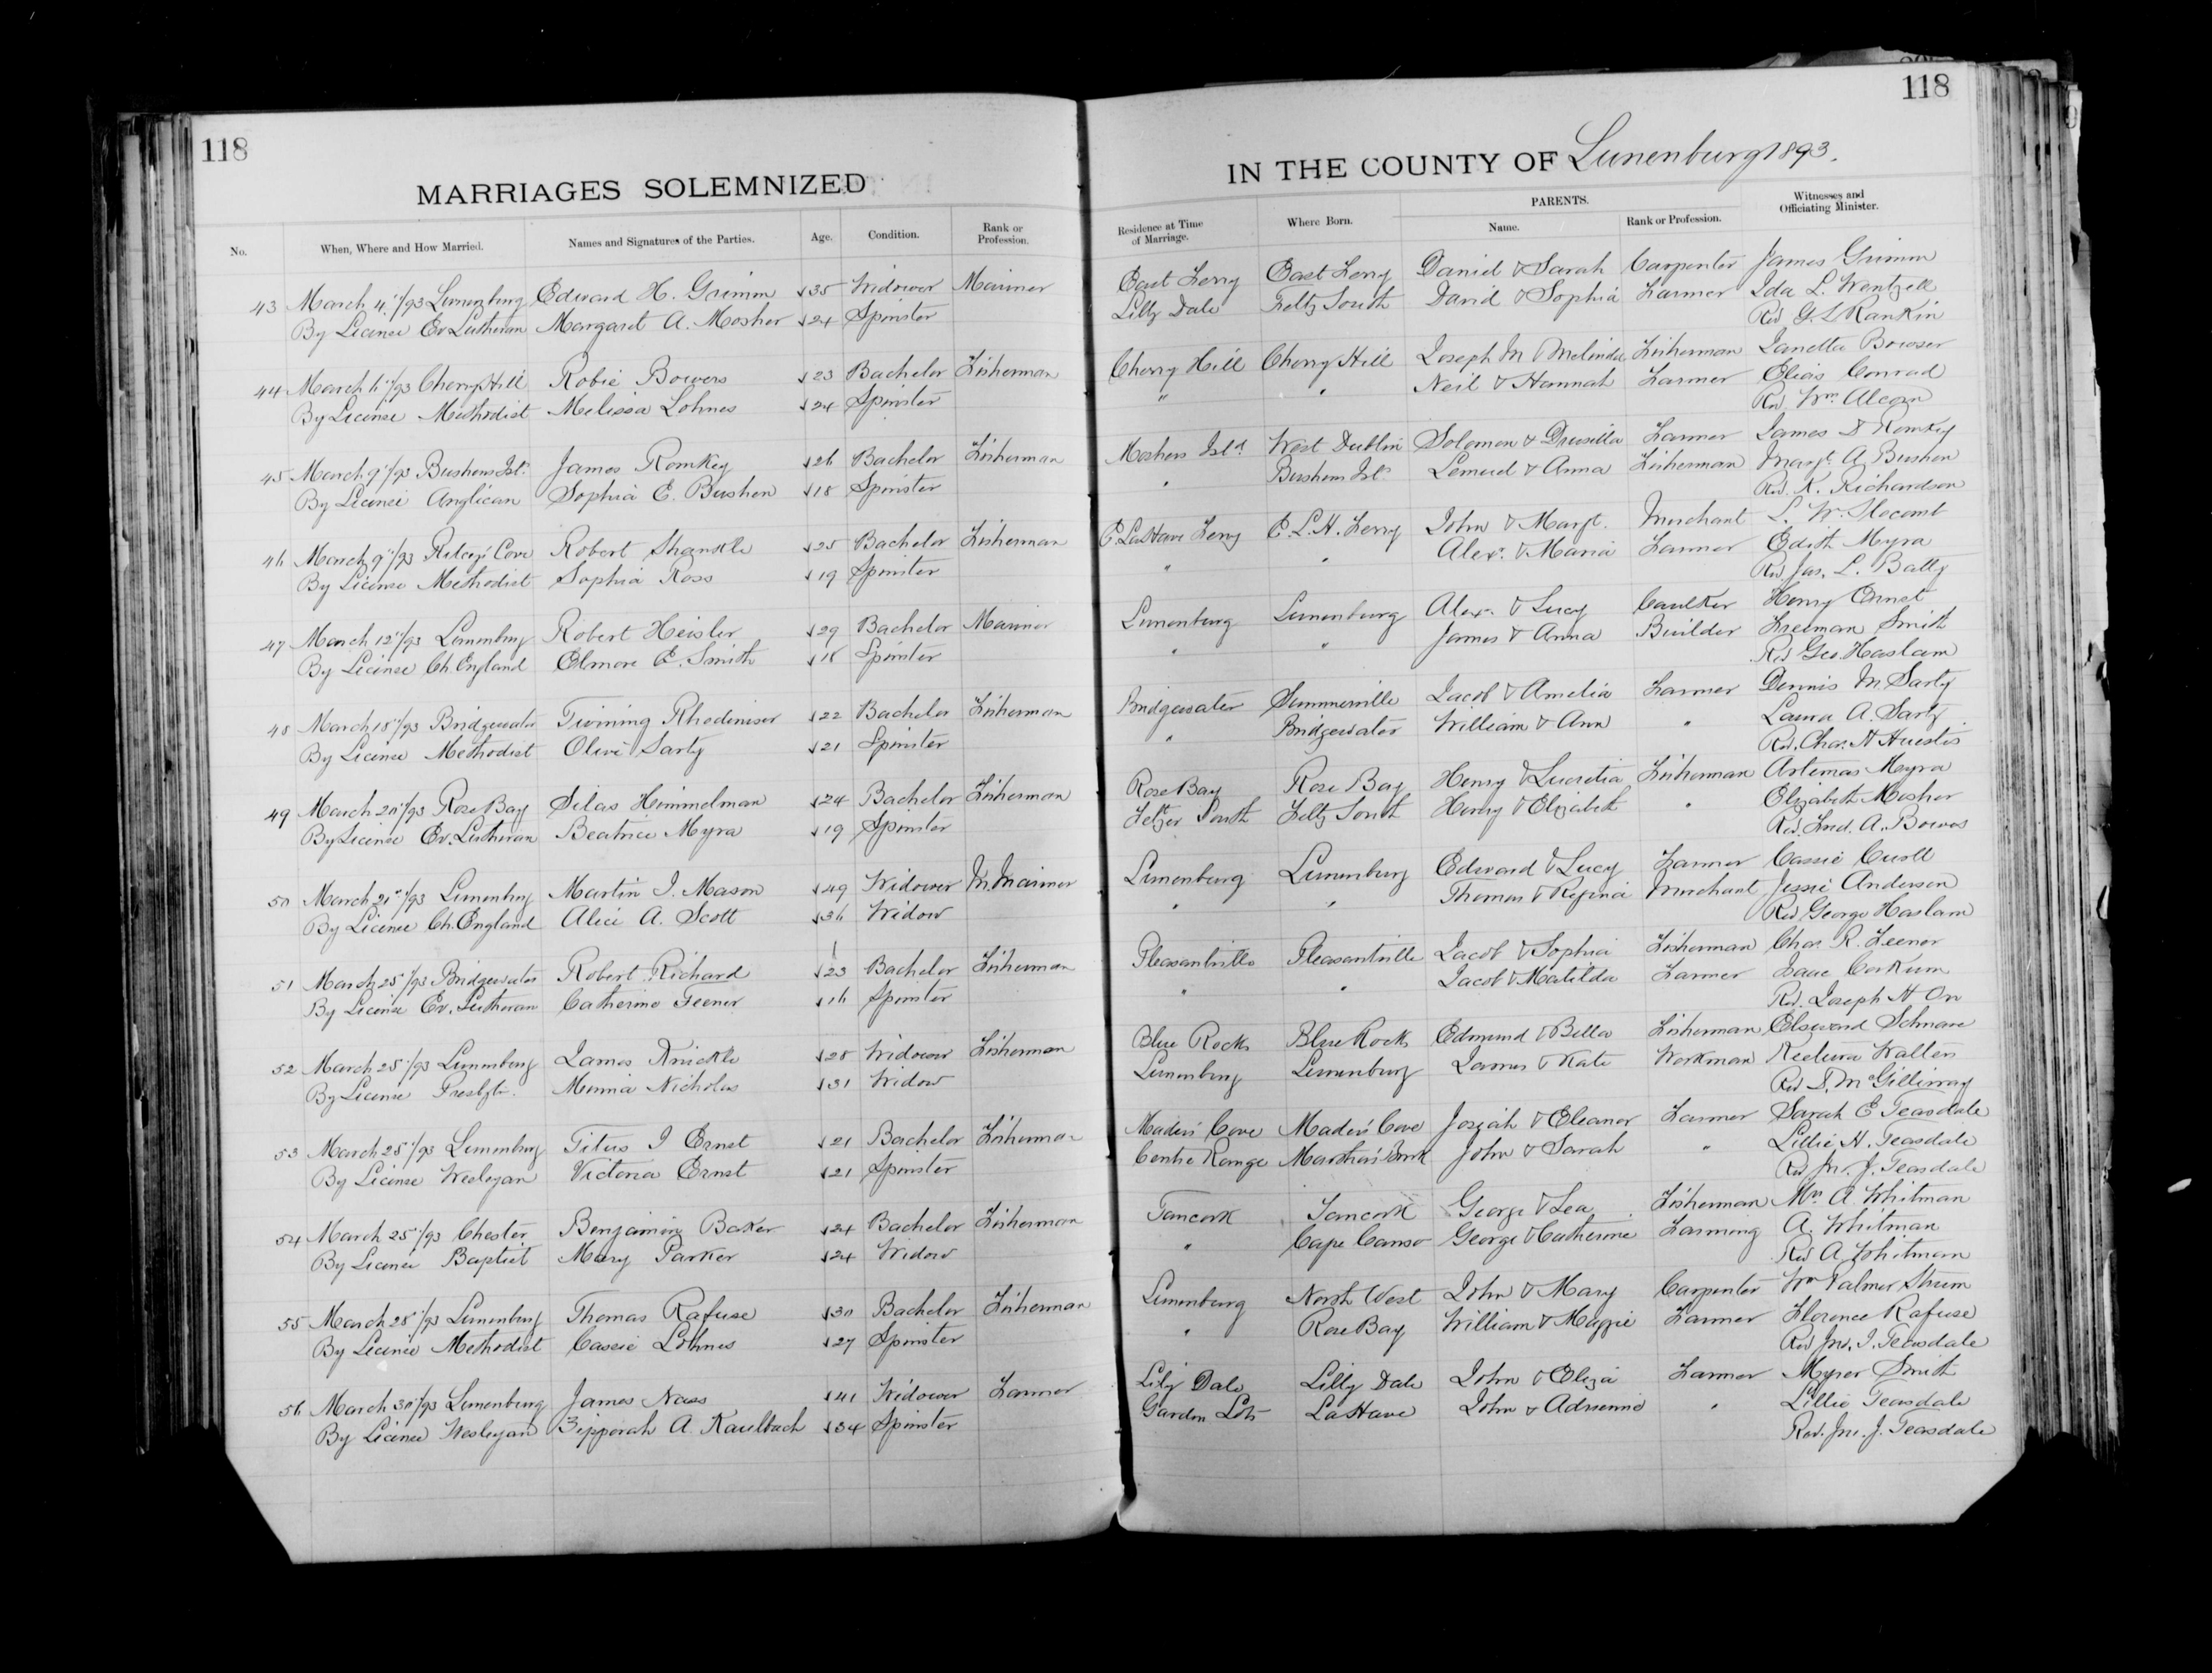 118
MARRIAGES SOLEMNIZED
No. When, Where and How Married. Names and Signatures of the Parties. Age. Condition. Rank or Profession.
43 March 4"/93 Lunenburg Edward H. Grimm 35 Widower Mariner
By License Ev Lutheran Margaret A. Mosher 24 Spinster
44 March 6"/93 Cherry Hill Robie Bowers 23 Bachelor Fisherman
By License Methodist Melissa Lohnes 24 Spinster
45 March 9"/93 Bushens Isld James Romkey 26 Bachelor Fisherman
By License Anglican Sophia E. Bushen 18 Spinster
46 March 9"/93 Ritceys Cove Robert Shankle 25 Bachelor Fisherman
By License Methodist Sophia Ross 19 Spinster
47 March 12"/93 Lunenburg Robert Heisler 29 Bachelor Mariner
By License Ch. England Elmore E. Smith 18 Spinster
48 March 18"/93 Bridgewater Twining Rhodeniser 22 Bachelor Fisherman
By License Methodist Olive Sarty 21 Spinster
49 March 20"/93 Rose Bay Silas Himmelman 24 Bachelor Fisherman
By License Ev. Lutheran Beatrice Myra 19 Spinster
50 March 21"/93 Lunenburg Martin J. Mason 49 Widower M. Mariner
By License Ch. England Alice A. Scott 36 Widow
51 March 25"/93 Bridgewater Robert Richard 23 Bachelor Fisherman
By License Ev. Lutheran Catherine Feener 16 Spinster
52 March 25"/93 Lunenburg James Knickle 28 Widower Fisherman
By License Presbytn. Minnie Nicholas 31 Widow
53 March 25"/93 Lunenburg Titus I Ernst 21 Bachelor Fisherman
By License Wesleyan Victoria Ernst 21 Spinster
54 March 25"/93 Chester Benjamin Baker 24 Bachelor Fisherman
By License Baptist Mary Parker 24 Widow
55 March 28"/93 Lunenburg Thomas Rafuse 30 Bachelor Fisherman
By License Methodist Cassie Lohnes 27 Spinster
56 March 30"/93 Lunenburg James Nass 41 Widower Farmer
By License Wesleyan Zipporah A. Kaulbach 34 Spinster
118
IN THE COUNTY OF Lunenburg 1893.
Residence at Time of Marriage. Where Born. PARENTS. Name. Rank or Profession. Witnesses and Officiating Minister.
East Ferry East Ferry Daniel & Sarah Carpenter James Grimm
Lilly Dale Feltz South David & Sophia Farmer Ida L. Wentzell
Rev G. L Rankin
Cherry Hill Cherry Hill Joseph M & Melinda Fisherman Janetta Bowser
" " Neil & Hannah Farmer Elias Conrad
Rev. Wm. Alcorn
Moshers Isld West Dublin Solomon & Drusilla Farmer James D Romkey
" Bushens Isld Lemuel & Anna Fisherman Margt. A Bushen
Rev. K. Richardson
E. LaHave Ferry E. L. H. Ferry John & Margt. Merchant L. W. Slocomb
" " Alexr. & Maria Farmer Edith Myra
Rev. Jas. L. Batty
Lunenburg Lunenburg Alexr. & Lucy Caulker Henry Ernst
" " James & Anna Builder Freeman Smith
Rev Geo. Haslam
Bridgewater Summerville Jacob & Amelia Farmer Dennis M. Sarty
" Bridgewater William & Ann " Laura A. Sarty
Rev. Chas. H Huestis
Rose Bay Rose Bay Henry & Lucretia Fisherman Artemas Myra
Feltzer South Feltz South Henry & Elizabeth " Elizabeth Mosher
Rev. Fred. A. Bowers
Lunenburg Lunenburg Edward & Lucy Farmer Cassie Cuoll
" " Thomas & Regina Merchant Jessie Anderson
Rev. George Haslam
Pleasantville Pleasantville Jacob & Sophia Fisherman Chas R. Feener
" " Jacob & Matilda Farmer Isaac Corkum
Rev. Joseph H Orr
Blue Rocks Blue Rocks Edmund & Bella Fisherman Edward Schnare
Lunenburg Lunenburg James & Kate Workman Walters
Rev D. McGillivray
Maders Cove Maders Cove Josiah & Eleanor Farmer Sarah E Teasdale
Centre Range Martins Brook John & Sarah " Lillie H. Teasdale
Rev Jn. J. Teasdale
Tancook Tancook George & Lea Fisherman Mrs A Whitman
" Cape Canso George & Catherine Farming A. Whitman
Rev A. Whitman
Lunenburg North West John & Mary Carpenter Wm Palmer Strum
" Rose Bay William & Maggie Farmer Florence Rafuse
Rev Jno. J. Teasdale
Lily Dale Lilly Dale John & Eliza Farmer Myrer Smith
Garden Lots LaHave John & Adrienne " Lillie Teasdale
Rev. Jno. J. Teasdale